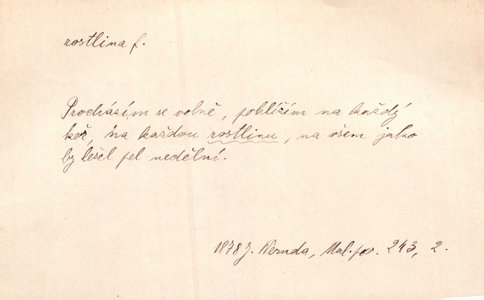 rostlina f.
Procházím se volně, pohlížím na každý
keř, na každou rostlinu, na všem jako
by ležel pel nedělní.
1878 J. Neruda, Mal. pov. 243, 2.